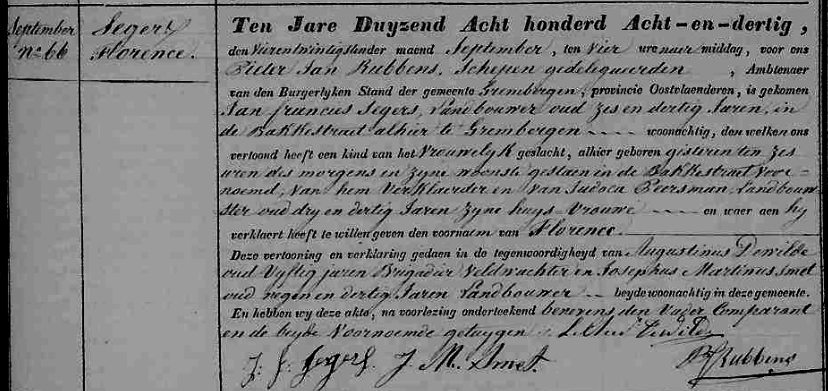 September
n.° 66
Segers
Florence.
Ten Jare Duyzend Acht honderd Acht-en-dertig,
den Vierentwintigstender maend September, ten Vier uren naer middag, voor ons
Pieter Jan Rubbens, Schepen gedelegueerden, Ambtenaer
van den Burgerlyken Stand der gemeente Grembergen, provincie Oostvlaenderen, is gekomen
Jan francies Segers, Landbouwer oud zes en dertig Jaren, in
de Bakkestraet alhier te Grembergen woonachtig, den welken ons
vertoond heeft een kind van het Vrouwelyk geslacht, alhier geboren gisteren ten zes
uren des morgens en zyne woonste gestaen in de Bakkestraet voor-
noemd, van hem Verklaerder en van Judoca Peersman Landbouw-
ster oud dry en dertig Jaren zyne huys-vrouwe en waer aen hy
verklaert heeft te willen geven den voornaem van Florence.
Deze vertooning en verklaring gedaen in de tegenwoordigheyd van Augustinus Dewilde
oud Vyftig jaren Brigadier Veldwachter en Josephus Martinus Smet
oud negen en dertig Jaren Landbouwer beyde woonachtig in deze gemeente.
En hebben wy deze akte, na voorlezing onderteekend benevens den Vader Comparant
en de beyde Voornoemde getuygen
J. f. Segers J. M. Smet. Rubbens